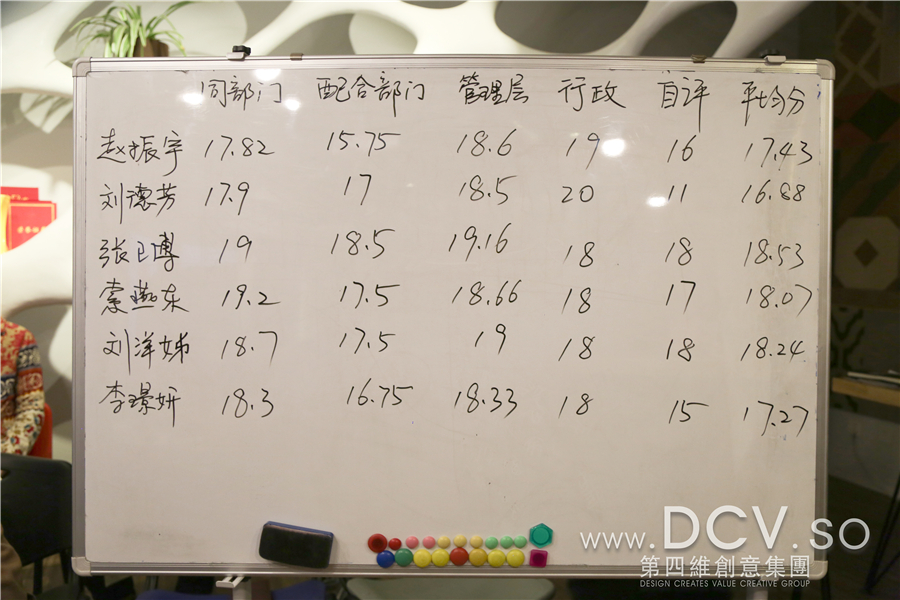 同部门 配合部门 管理层 行政 自评 平均分
赵振宇 17.82 15.75 18.6 19 16 17.43
刘德芳 17.9 17 18.5 20 11 16.88
张卫博 19 18.5 19.16 18 18 18.53
索燕东 19.2 17.5 18.66 18 17 18.07
刘洋姊 18.7 17.5 19 18 18 18.24
李璟妍 18.3 16.75 18.33 18 15 17.27
www.DCV.so
第四維創意集團
DESIGN CREATES VALUE CREATIVE GROUP